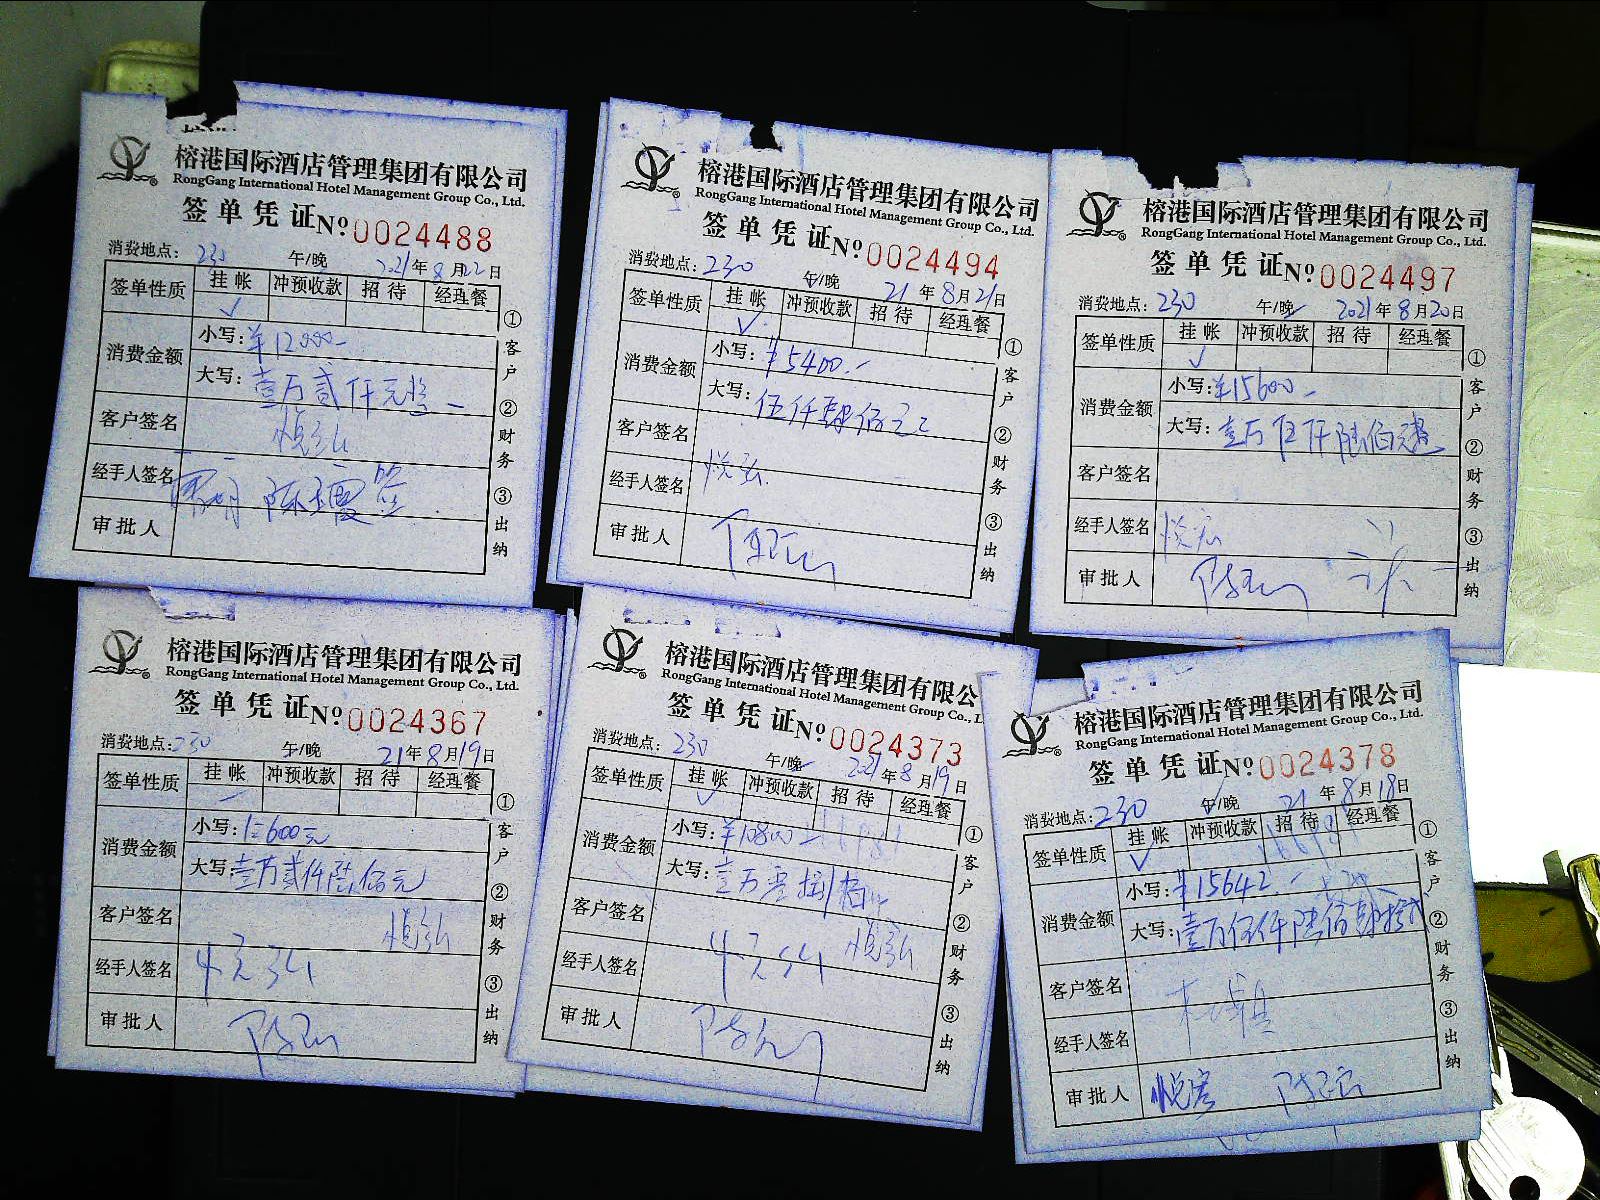 榕港国际酒店管理集团有限公司
RongGang International Hotel Management Group Co., Ltd.
签单凭证 №0024488
消费地点：230 午/晚 2021年8月22日
签单性质 挂帐 冲预收款 招待 经理餐
✓
消费金额 小写：¥12000-
大写：壹万贰仟元整
客户签名
经手人签名
审批人
①客户 ②财务 ③出纳
榕港国际酒店管理集团有限公司
RongGang International Hotel Management Group Co., Ltd.
签单凭证 №0024494
消费地点：230 午/晚 21年8月21日
签单性质 挂帐 冲预收款 招待 经理餐
✓
消费金额 小写：¥5400.-
大写：伍仟肆佰元
客户签名
经手人签名
审批人
①客户 ②财务 ③出纳
榕港国际酒店管理集团有限公司
RongGang International Hotel Management Group Co., Ltd.
签单凭证 №0024497
消费地点：230 午/晚 2021年8月20日
签单性质 挂帐 冲预收款 招待 经理餐
✓
消费金额 小写：¥15600-
大写：壹万伍仟陆佰元整
客户签名
经手人签名
审批人
①客户 ②财务 ③出纳
榕港国际酒店管理集团有限公司
RongGang International Hotel Management Group Co., Ltd.
签单凭证 №0024367
消费地点：230 午/晚 21年8月19日
签单性质 挂帐 冲预收款 招待 经理餐
消费金额 小写：12600元
大写：壹万贰仟陆佰元
客户签名
经手人签名
审批人
①客户 ②财务 ③出纳
榕港国际酒店管理集团有限公
RongGang International Hotel Management Group Co., L
签单凭证 №0024373
消费地点：230 午/晚 2021年8月19日
签单性质 挂帐 冲预收款 招待 经理餐
✓
消费金额 小写：¥10800-
大写：壹万零捌佰
客户签名
经手人签名
审批人
①客户 ②财务 ③出纳
榕港国际酒店管理集团有限公司
RongGang International Hotel Management Group Co., Ltd.
签单凭证 №0024378
消费地点：230 午/晚 21年8月18日
签单性质 挂帐 冲预收款 招待 经理餐
✓
消费金额 小写：¥15642.-
大写：壹万伍仟陆佰肆拾贰
客户签名
经手人签名
审批人
①客户 ②财务 ③出纳